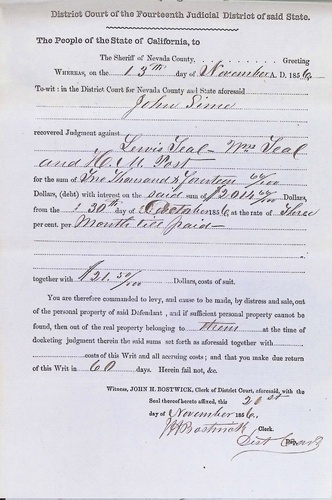 District Court of the Fourteenth Judicial District of said State.
The People of the State of California, to
The Sheriff of Nevada County, Greeting
WHEREAS, on the 13th day of November A. D. 1856
To-wit: in the District Court for Nevada County and State aforesaid
John Sims
recovered Judgment against
Lewis Teal Wm Teal
and H. M. Post
for the sum of Two Thousand & Fourteen 60/100
Dollars, (debt) with interest on the said sum of $2014 60/100 Dollars,
from the 30th day of October 1856 at the rate of Three
per cent. per Month till paid
together with $21.50/100 Dollars, costs of suit.
You are therefore commanded to levy, and cause to be made, by distress and sale, out
of the personal property of said Defendant , and if sufficient personal property cannot be
found, then out of the real property belonging to them at the time of
docketing judgment therein the said sums set forth as aforesaid together with
costs of this Writ and all accruing costs; and that you make due return
of this Writ in 60 days. Herein fail not, &c.
Witness, JOHN H. BOSTWICK, Clerk of District Court, aforesaid, with the
Seal thereof hereto affixed, this 20st
day of November 1856.
J H Bostwick Clerk.
Dist Court